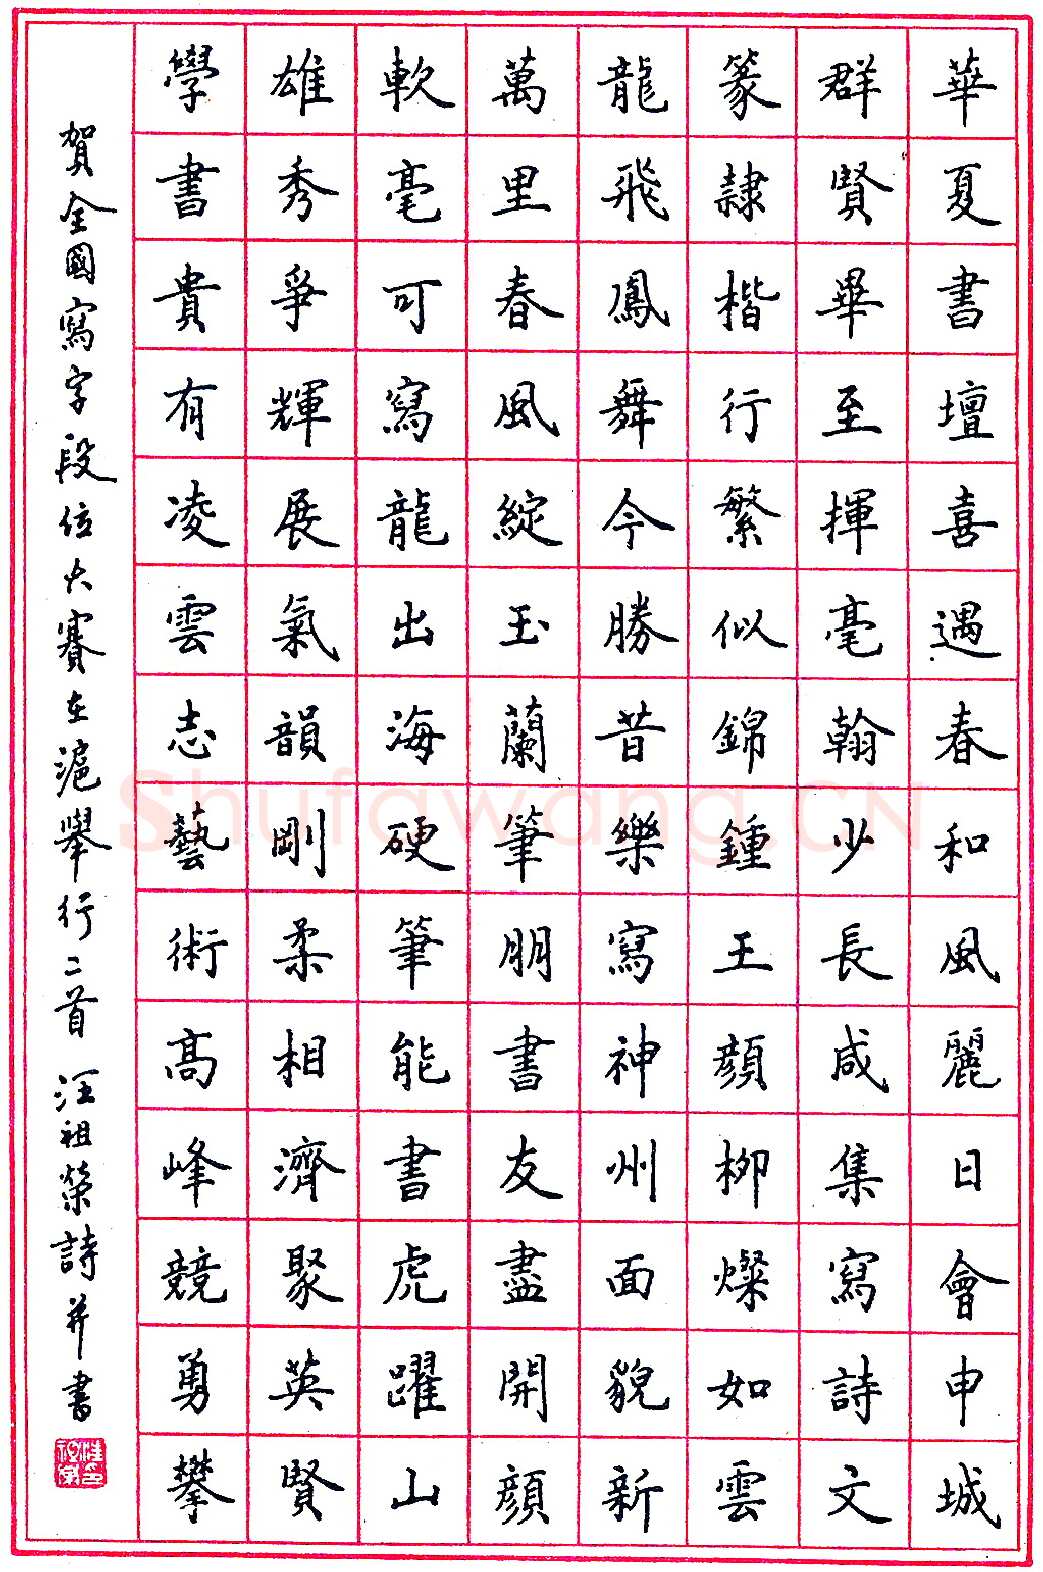 華夏書壇喜遇春和風麗日會申城
群賢畢至揮毫翰少長咸集寫詩文
篆隸楷行繁似錦鍾王顏柳燦如雲
龍飛鳳舞今勝昔樂寫神州面貌新
萬里春風綻玉蘭筆朋書友盡開顏
軟毫可寫龍出海硬筆能書虎躍山
雄秀爭輝展氣韻剛柔相濟聚英賢
學書貴有凌雲志藝術高峰競勇攀
賀全國寫字段位大賽在滬舉行二首 汪祖榮詩并書
Shufawang.CN